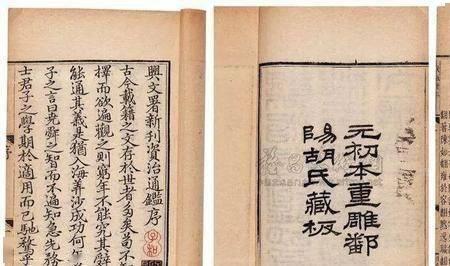 元初本重雕鄱
陽胡氏藏板
興文署新刊資治通鑑序
古今載籍之文存於世者多矣苟不
擇而欲遍觀之則窮年不能究其辭
能通其義是猶入海算沙成功何
子之言曰堯舜之智而不遍知急先務
士君子之學期於適用而已馳騖乎